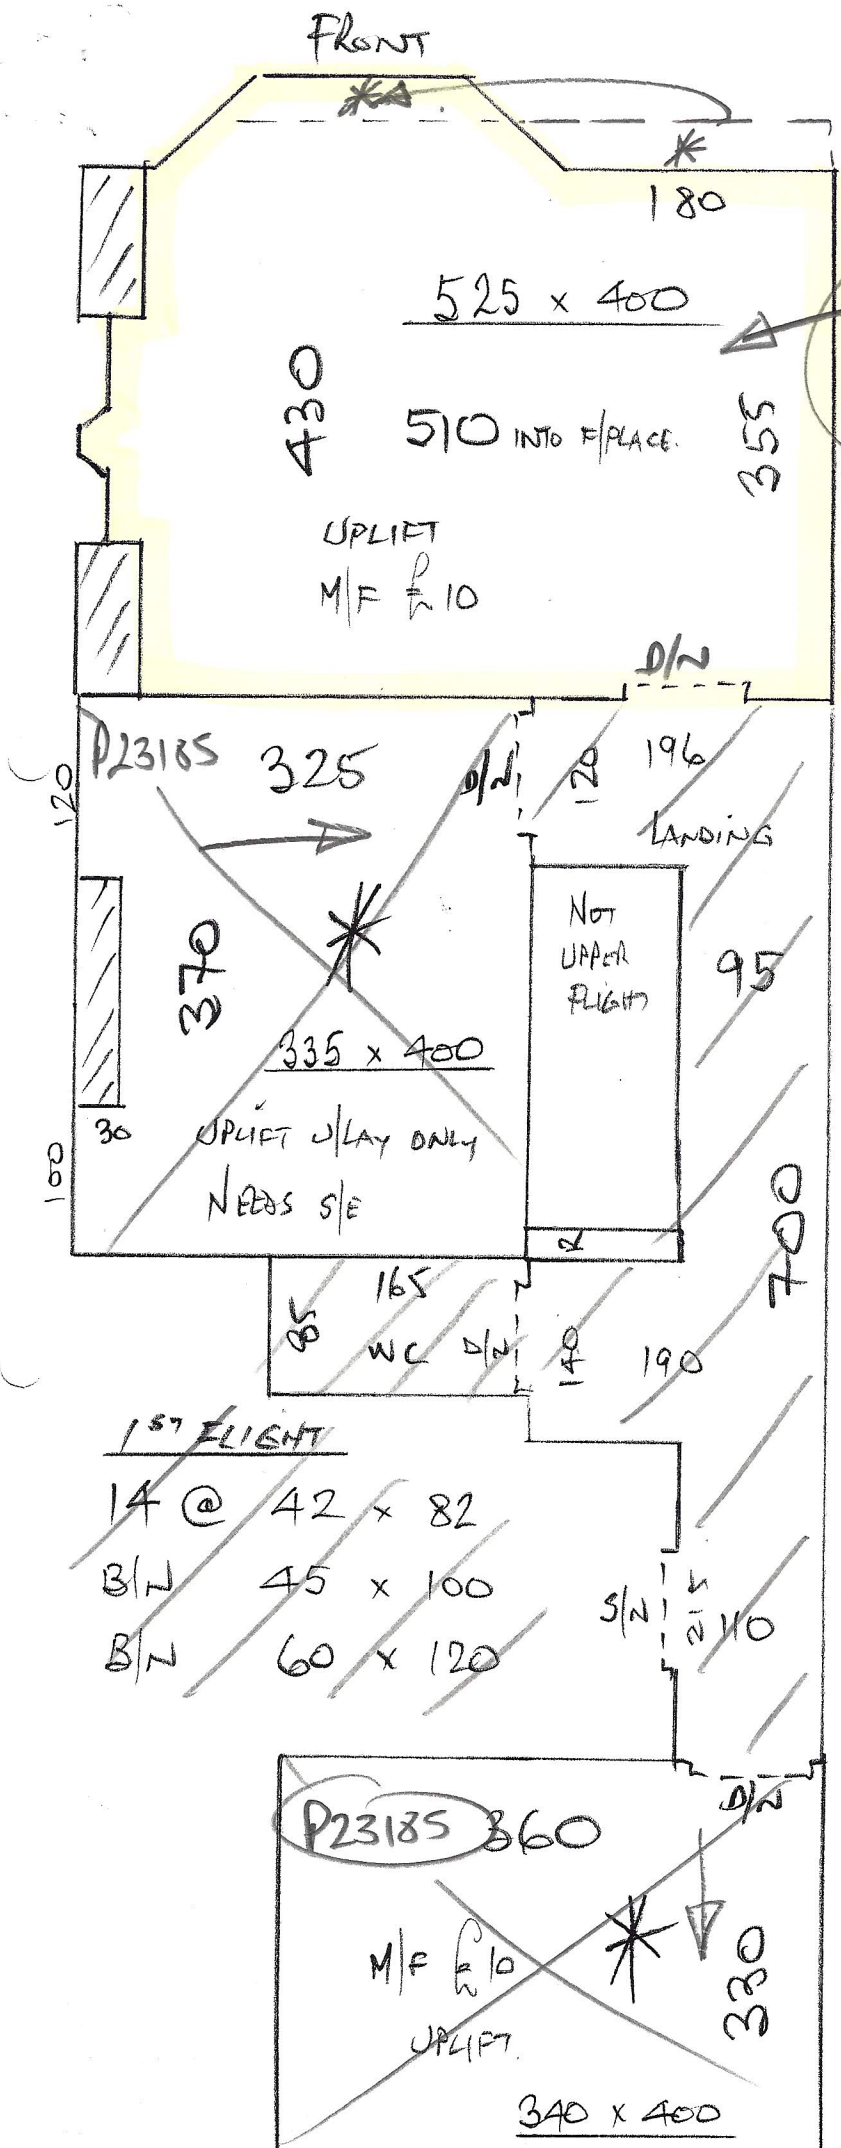 FRONT
180
525 x 400
430
510 INTO F/PLACE.
355
UPLIFT
M/F £10
D/N
P23185
325
D/N
120
196
120
LANDING
370
NOT
UPPER
FLIGHT
95
335 x 400
30
UPLIFT U/LAY ONLY
100
NEEDS S/E
R
700
165
85
WC
D/N
140
190
1ST FLIGHT
14 @ 42 x 82
B/N 45 x 100
B/N 60 x 120
S/N
215
110
D/N
P23185
360
M/F £10
330
UPLIFT
340 x 400